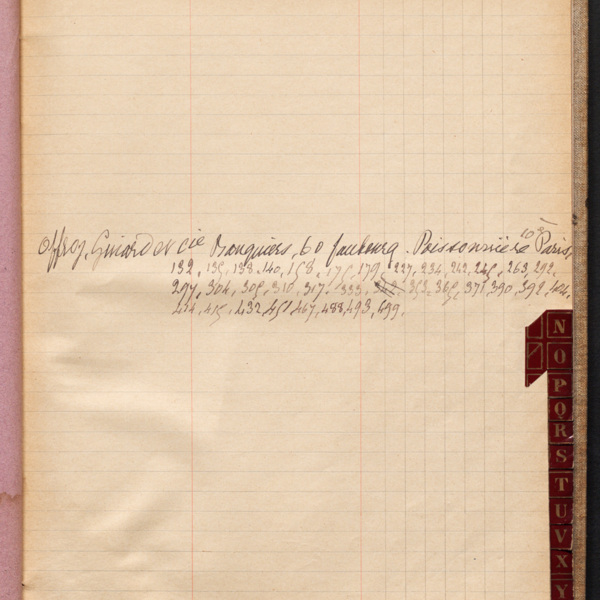 Offroy, Guiard et cie Banquiers, 60 faubourg Poissonnière 10e Paris,
132, 135, 138, 140, 158, 175, 179, 227, 234, 242, 245, 263, 292,
297, 304, 305, 310, 317, 333, 353, 365, 371, 390, 392, 404,
414, 415, 432, 451, 467, 488, 493, 499.
N
O
P
Q
R
S
T
U
V
X
Y